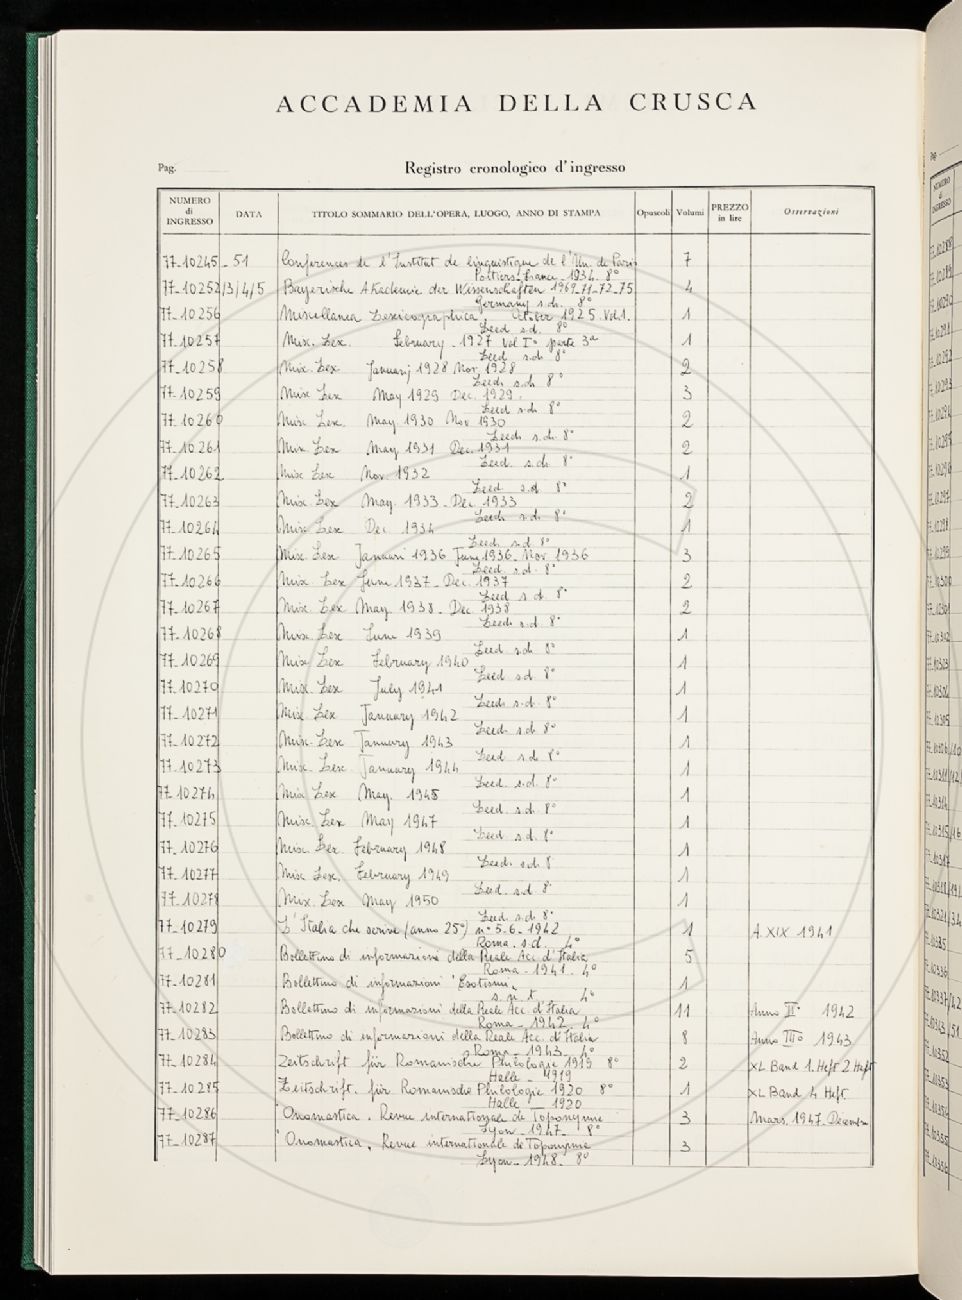 ACCADEMIA DELLA CRUSCA
Pag.
Registro cronologico d'ingresso
NUMERO di INGRESSO DATA TITOLO SOMMARIO DELL'OPERA, LUOGO, ANNO DI STAMPA Opuscoli Volumi PREZZO in lire Osservazioni
77-10245 - 51 Conferences de l'Institut de linguistique de l'Un. de Paris 7
Poitiers-France - 1934. 8°
77-10252/3/4/5 Bayerische Akademie der Wissenschaften 1969-71-72-75 4
Germany s.d. 8°
77-10256 Miscellanea Lexicographica, October 1925 Vol. 1. 1
Leed s.d. 8°
77-10257 Misc. Lex. February - 1927 Vol I° parte 3ª 1
Leed s.d. 8°
77-10258 Misc. Lex January 1928 Nov. 1928 2
Leeds s.d. 8°
77-10259 Misc Lex May 1929 Dec. 1929. 3
Leed s.d. 8°
77-10260 Misc. Lex. May 1930 Nov 1930 2
Leeds s.d. 8°
77-10261 Misc. Lex May 1931 Dec. 1931 2
Leed s.d. 8°
77-10262 Misc Lex Nov. 1932 1
Leed s.d. 8°
77-10263 Misc Lex May. 1933 - Dec 1933 2
Leeds s.d. 8°
77-10264 Misc Lex Dec 1934 1
Leeds s.d 8°
77-10265 Misc. Lex Januari 1936 June 1936 - Nov 1936 3
Leed. s.d. 8°
77-10266 Misc. Lex June 1937 - Dec. 1937 2
Leed s d. 8°
77-10267 Misc. Lex May 1938 - Dec 1938 2
Leeds s.d 8°
77-10268 Misc Lex June 1939 1
Leed s.d. 8°
77-10269 Misc Lex February 1940 1
Leed s.d 8°
77-10270 Misc. Lex July 1941 1
Leeds s.d. 8°
77-10271 Misc Lex January 1942 1
Leed s.d 8°
77-10272 Misc. Lex January 1943 1
Leed s.d 8°
77-10273 Misc. Lex. January 1944 1
Leed. s.d. 8°
77-10274 Misc Lex May. 1945 1
Leed. s.d. 8°
77-10275 Misc. Lex May 1947 1
Leed s.d. 8°
77-10276 Misc. Lex. February 1948 1
Leed. s.d 8°
77-10277 Misc Lex. February 1949 1
Leed. s.d 8°
77-10278 Misc. Lex May 1950 1
Leed. s.d. 8°
77-10279 L'Italia che scrive (anno 25°) n° 5-6. 1942 1 A. XIX 1941
Roma. s.d. 4°
77-10280 Bollettino di informazioni della Reale Acc d'Italia 5
Roma - 1941. 4°
77-10281 Bollettino di informazioni 1
s. n. t. 4°
77-10282 Bollettino di informazioni della Reale Acc. d'Italia 11 Anno II° 1942
Roma - 1942. 4°
77-10283 Bollettino di informazioni della Reale Acc. d'Italia 8 Anno III° 1943
Roma - 1943. 4°
77-10284 Zeitschrift für Romanische Philologie 1919 8° 2 XL Band 1. Heft 2 Heft
Halle - 1919
77-10285 Zeitschrift. für Romanische Philologie 1920 8° 1 XL Band 4 Heft
Halle - 1920
77-10286 Onomastica. Revue internationale de Toponymie 3 Mars. 1947-Décembre
Lyon - 1947 - 8°
77-10287 Onomastica, Revue internationale de Toponymie 3
Lyon - 1948. 8°